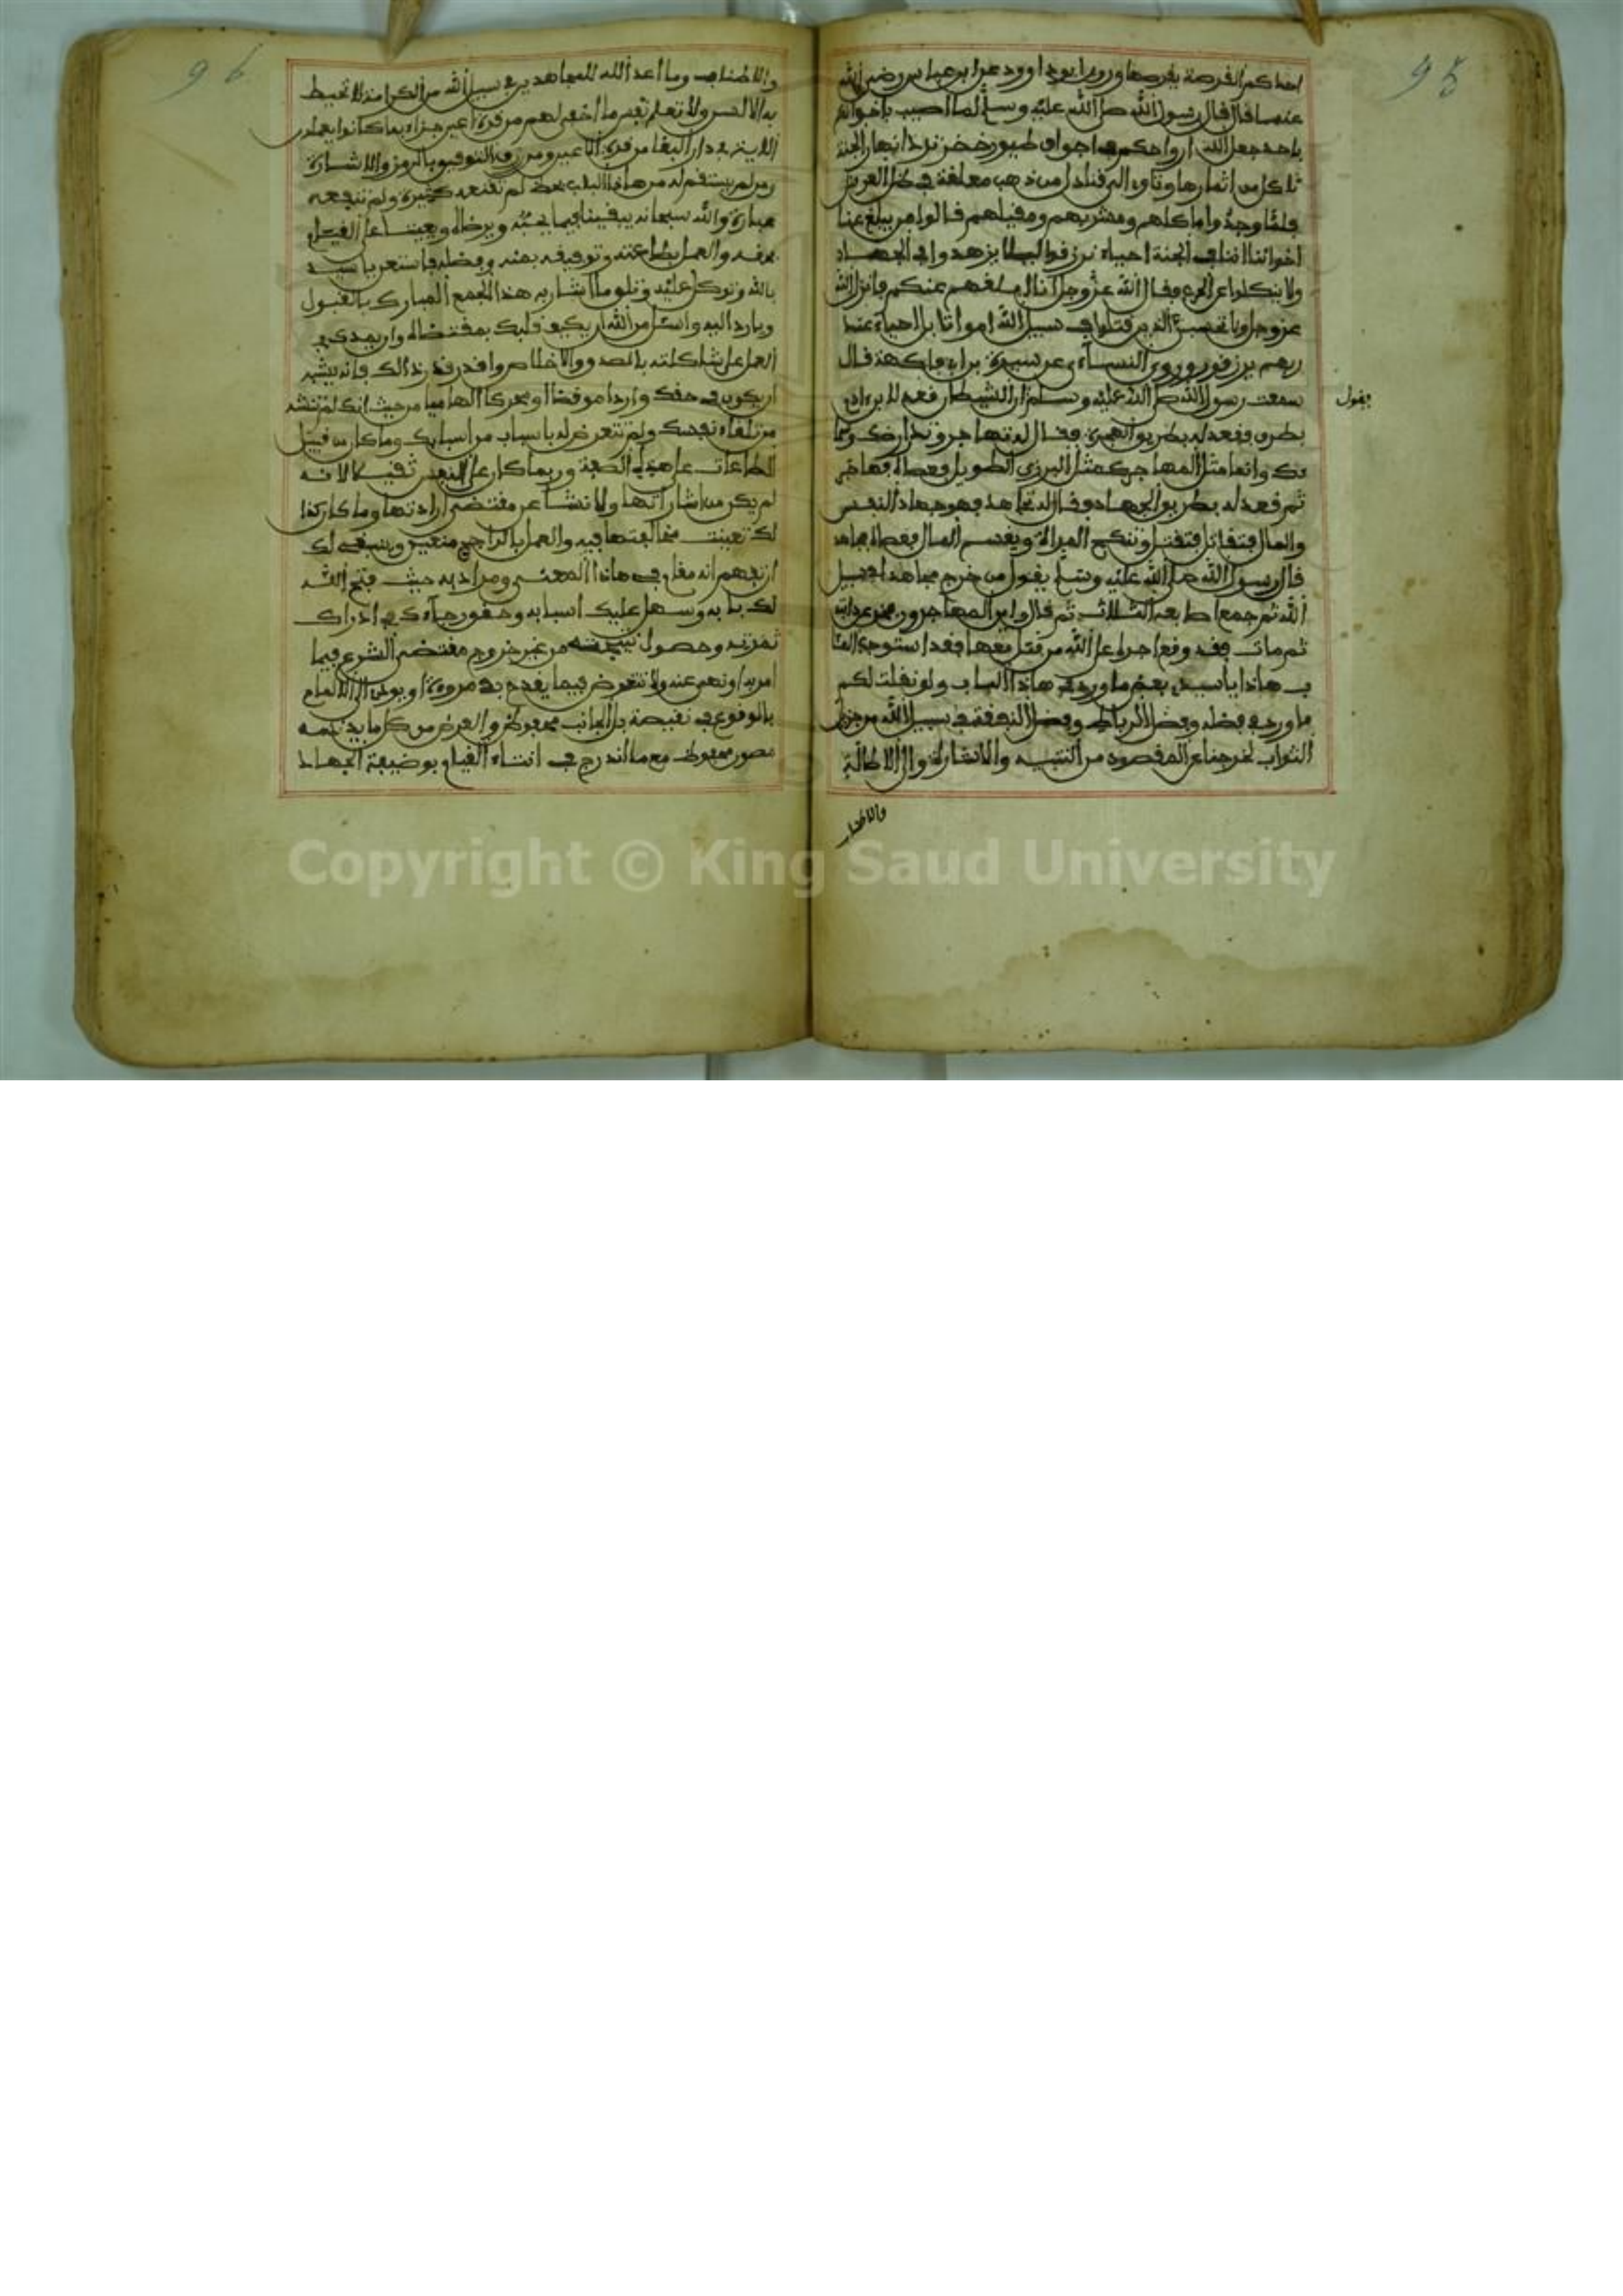 95
احدكم القرصة يقرصها وروى ابو داوود عن ابن عباس رضي الله
عنهما قال قال رسول الله صلى الله عليه وسلم لما اصيب باخوانكم
باحد جعل الله ارواحكم في اجواف طيور خضر ترد انهار الجنة
تاكل من اثمارها وتاوي الى قناديل من ذهب معلقة في ظل العرش
فلما وجدوا ماكلهم ومشربهم ومقيلهم قالوا من يبلغ عنا
اخواننا اننا في الجنة احياء نرزق ليلا يزهدوا في الجهاد
ولا ينكلوا عن الحرب فقال الله عز وجل انا ابلغهم عنكم فانزل الله
عز وجل ولا تحسبن الذين قتلوا في سبيل الله امواتا بل احياء عند
ربهم يرزقون وروى النساءي عن سبرة بن ابي فاكهة قال
سمعت رسول الله صلى الله عليه وسلم ان الشيطان قعد لابن ءادم
يقول
بطرق فقعد له بطريق الهجرة فقال له تهاجر وتذر ارضك وسما
ءك وانما مثل المهاجر كمثل الفرس في الطويل فعصاه فهاجر
ثم قعد له بطريق الجهاد فقال له تجاهد فهو جهاد النفس
والمال فتقاتل فتقتل وتنكح المراة ويقسم المال فعصاه فجاهد
قال رسول الله صلى الله عليه وسلم يقول من خرج مجاهدا في سبيل
الله ثم جمع اصابعه الثلاث ثم قال واين المجاهدون فخر عن دابته
ثم مات فقد وقع اجره على الله من قتل قعصا فقد استوجب الما
ب هاذا يا سيدي بعض ما ورد في هاذا الباب ولو نقلت لكم
ما ورد في فضله وفضل الرباط وفضل النفقة في سبيل الله من جزيل
الثواب لخرجنا عن المقصود من التنبيه والاشارة الى الاطالة
والاطناب
96
والاطناب وما اعد الله للمجاهدين في سبيل الله من الكرامة لا تحيط
به الالسن ولا تعلم نفس ما اخفي لهم من قرة اعين جزاء بما كانوا يعملون
في دار البقا من قرة الاعين ومن رزق التوفيق بالرمز والاشارة
ومن لم يستقم له من هاذا الباب بحظ لم تقنعه كثيرة ولم تنفعه
عبارة والله سبحانه يبقينا فيما يحبه ويرضاه ويعيننا على القيام
بحقه والعمل بطاعته وتوفيقه بمنه وفضله فاستعن يا سيدي
بالله وتوكل عليه وتلق ما اشار به هذا الجمع المبارك بالقبول
وبادر اليه واسئل من الله ان يكيف قلبك بمقتضاه وان يهديك
العمل على شاكلته بالصدق والاخلاص واقدر قدر ذالك فانه يشبه
ان يكون في حقك واردا موفضا او محركا الهاميا من حيث انك لم تنشه
من تلقاء نفسك ولم تتعرض له باسباب من اسبابك وما كان من قبيل
الطاعات على هذه الصفة وربما كان على النفس ثقيلا لانه
لم يكن من اشاراتها ولا نشا عن مقتضى ارادتها وما كان كذا
لك تعينت مخالفتها فيه والعمل بالراجح متعين وينبغي لك
ان تفهم انه مقام في هاذا المعنى ومراد به حيث فتح الله
لك بابه وسهل عليك اسبابه وحقق رجاءك في ادراك
ثمرته وحصول نتيجته من غير خروج مقتضى الشرع فيما
امر به او نهى عنه ولا تتعرض فيما يقدح في مروءة او يودي الى الالمام
بالوقوع في نقيصة بل الجانب محفوظ والعرض من كل ما يذمه
مصون محفوظ مع ما اندرج في اثناء القيام بوضيفة الجهاد
Copyright © King Saud University